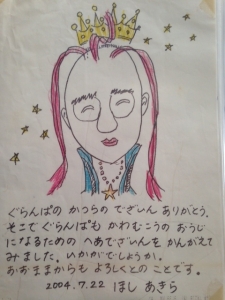 ぐらんぱの かつらの でざいん ありがとう、
そこで ぐらんぱも かわむこうの おうじ
になるための へあでざいんを かんがえて
みました。いかがでしょうか。
おおままからも よろしくとの ことです。
2004.7.22 ほし あきら